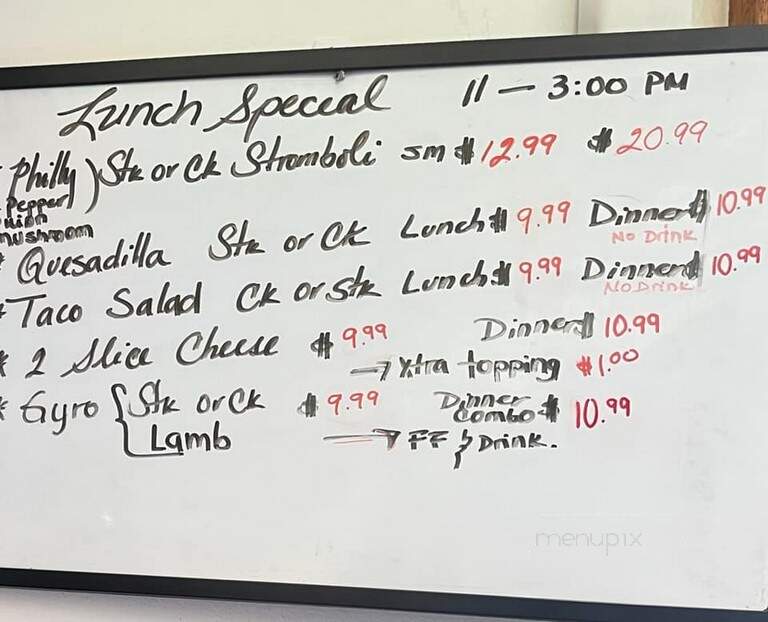 Lunch Special 11 — 3:00 PM
Philly) Stk or Ck Stromboli sm $12.99 $20.99
Pepper
mushroom
* Quesadilla Stk or CK Lunch $9.99 Dinner $10.99
No Drink
* Taco Salad CK or Stk Lunch $9.99 Dinner $10.99
No Drink
* 2 Slice Cheese $9.99 Dinner $10.99
→ Xtra topping $1.00
* Gyro { Stk or Ck $9.99 Dinner Combo $10.99
Lamb → FF & Drink.
menupix